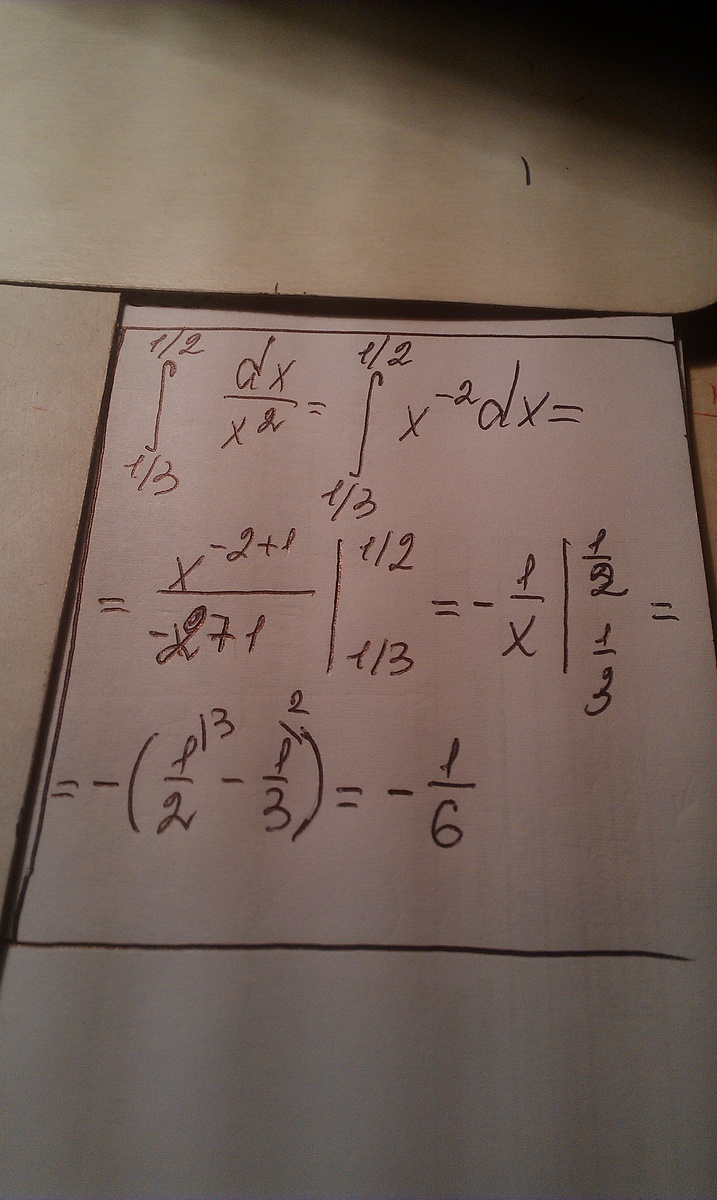 ∫_{1/3}^{1/2} dx/x² = ∫_{1/3}^{1/2} x^{-2} dx =
= x^{-2+1}/(-2+1) |_{1/3}^{1/2} = - 1/x |_{1/3}^{1/2} =
= - (1/2^{\3} - 1/3^{\2}) = - 1/6